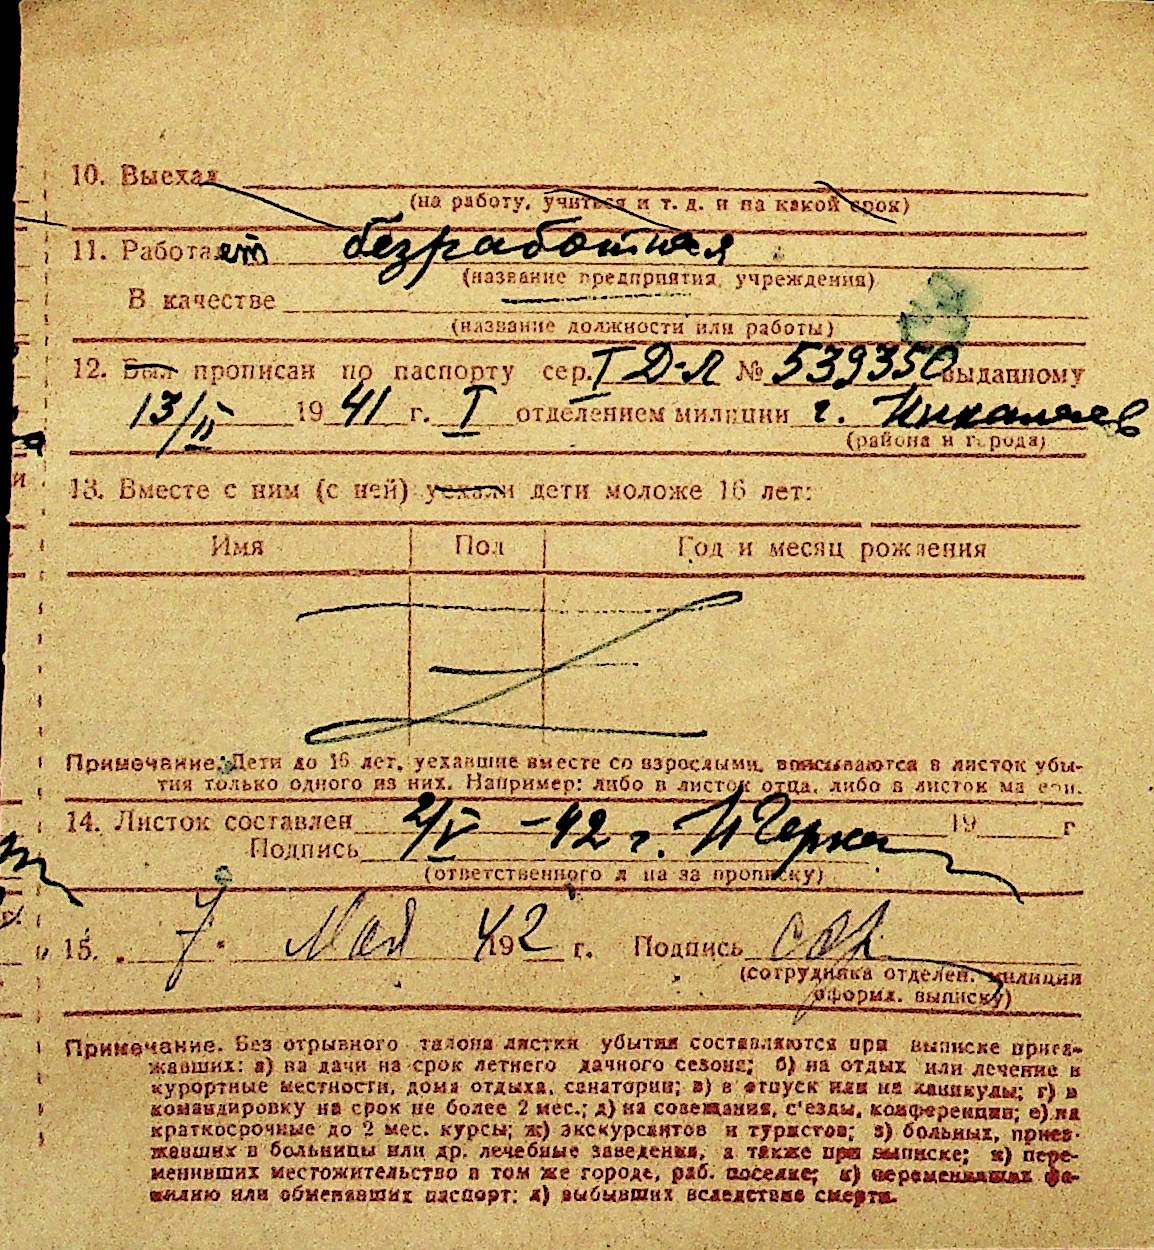 10. Выехал
(на работу, учиться и т. д. и на какой срок)
11. Работает безработная
(название предприятия, учреждения)
В качестве
(название должности или работы)
12. Был прописан по паспорту сер. I Д-Л № 539350 выданному
13/II 1941 г. I отделением милиции г. Николаев
(района и города)
13. Вместе с ним (с ней) уехали дети моложе 16 лет:
Имя Пол Год и месяц рождения
Примечание: Дети до 16 лет, уехавшие вместе со взрослыми, вписываются в листок убы-
тия только одного из них. Например: либо в листок отца, либо в листок матери.
14. Листок составлен 2/V -42 г. 19 г
Подпись
(ответственного лица за прописку)
15. 7 Мая 1942 г. Подпись
(сотрудника отделен. милиции
оформл. выписку)
Примечание. Без отрывного талона листки убытия составляются при выписке приез-
жавших: а) на дачи на срок летнего дачного сезона; б) на отдых или лечение в
курортные местности, дома отдыха, санатории; в) в отпуск или на каникулы; г) в
командировку на срок не более 2 мес.; д) на совещания, с'езды, конференции; е) на
краткосрочные до 2 мес. курсы; ж) экскурсантов и туристов; з) больных, приез-
жавших в больницы или др. лечебные заведения, а также при выписке; и) пере-
менивших местожительство в том же городе, раб. поселке; к) переменивших фа-
милию или обменявших паспорт; л) выбывших вследствие смерти.